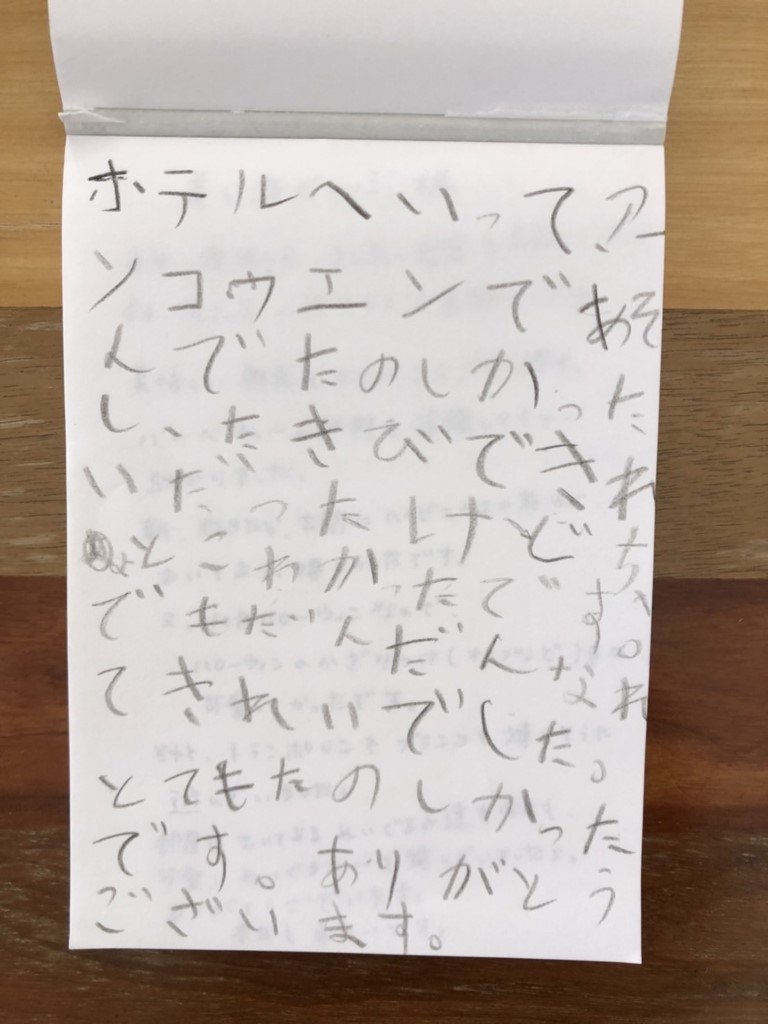 ホテルへいってアー
ソコウエンであそ
んでたのしかった
し、たきびできれ
いだったけどち
ょとこわかったです。
でもだいんだんなれ
てきれいでした。
とてもたのしかった
です。ありがとう
ございます。